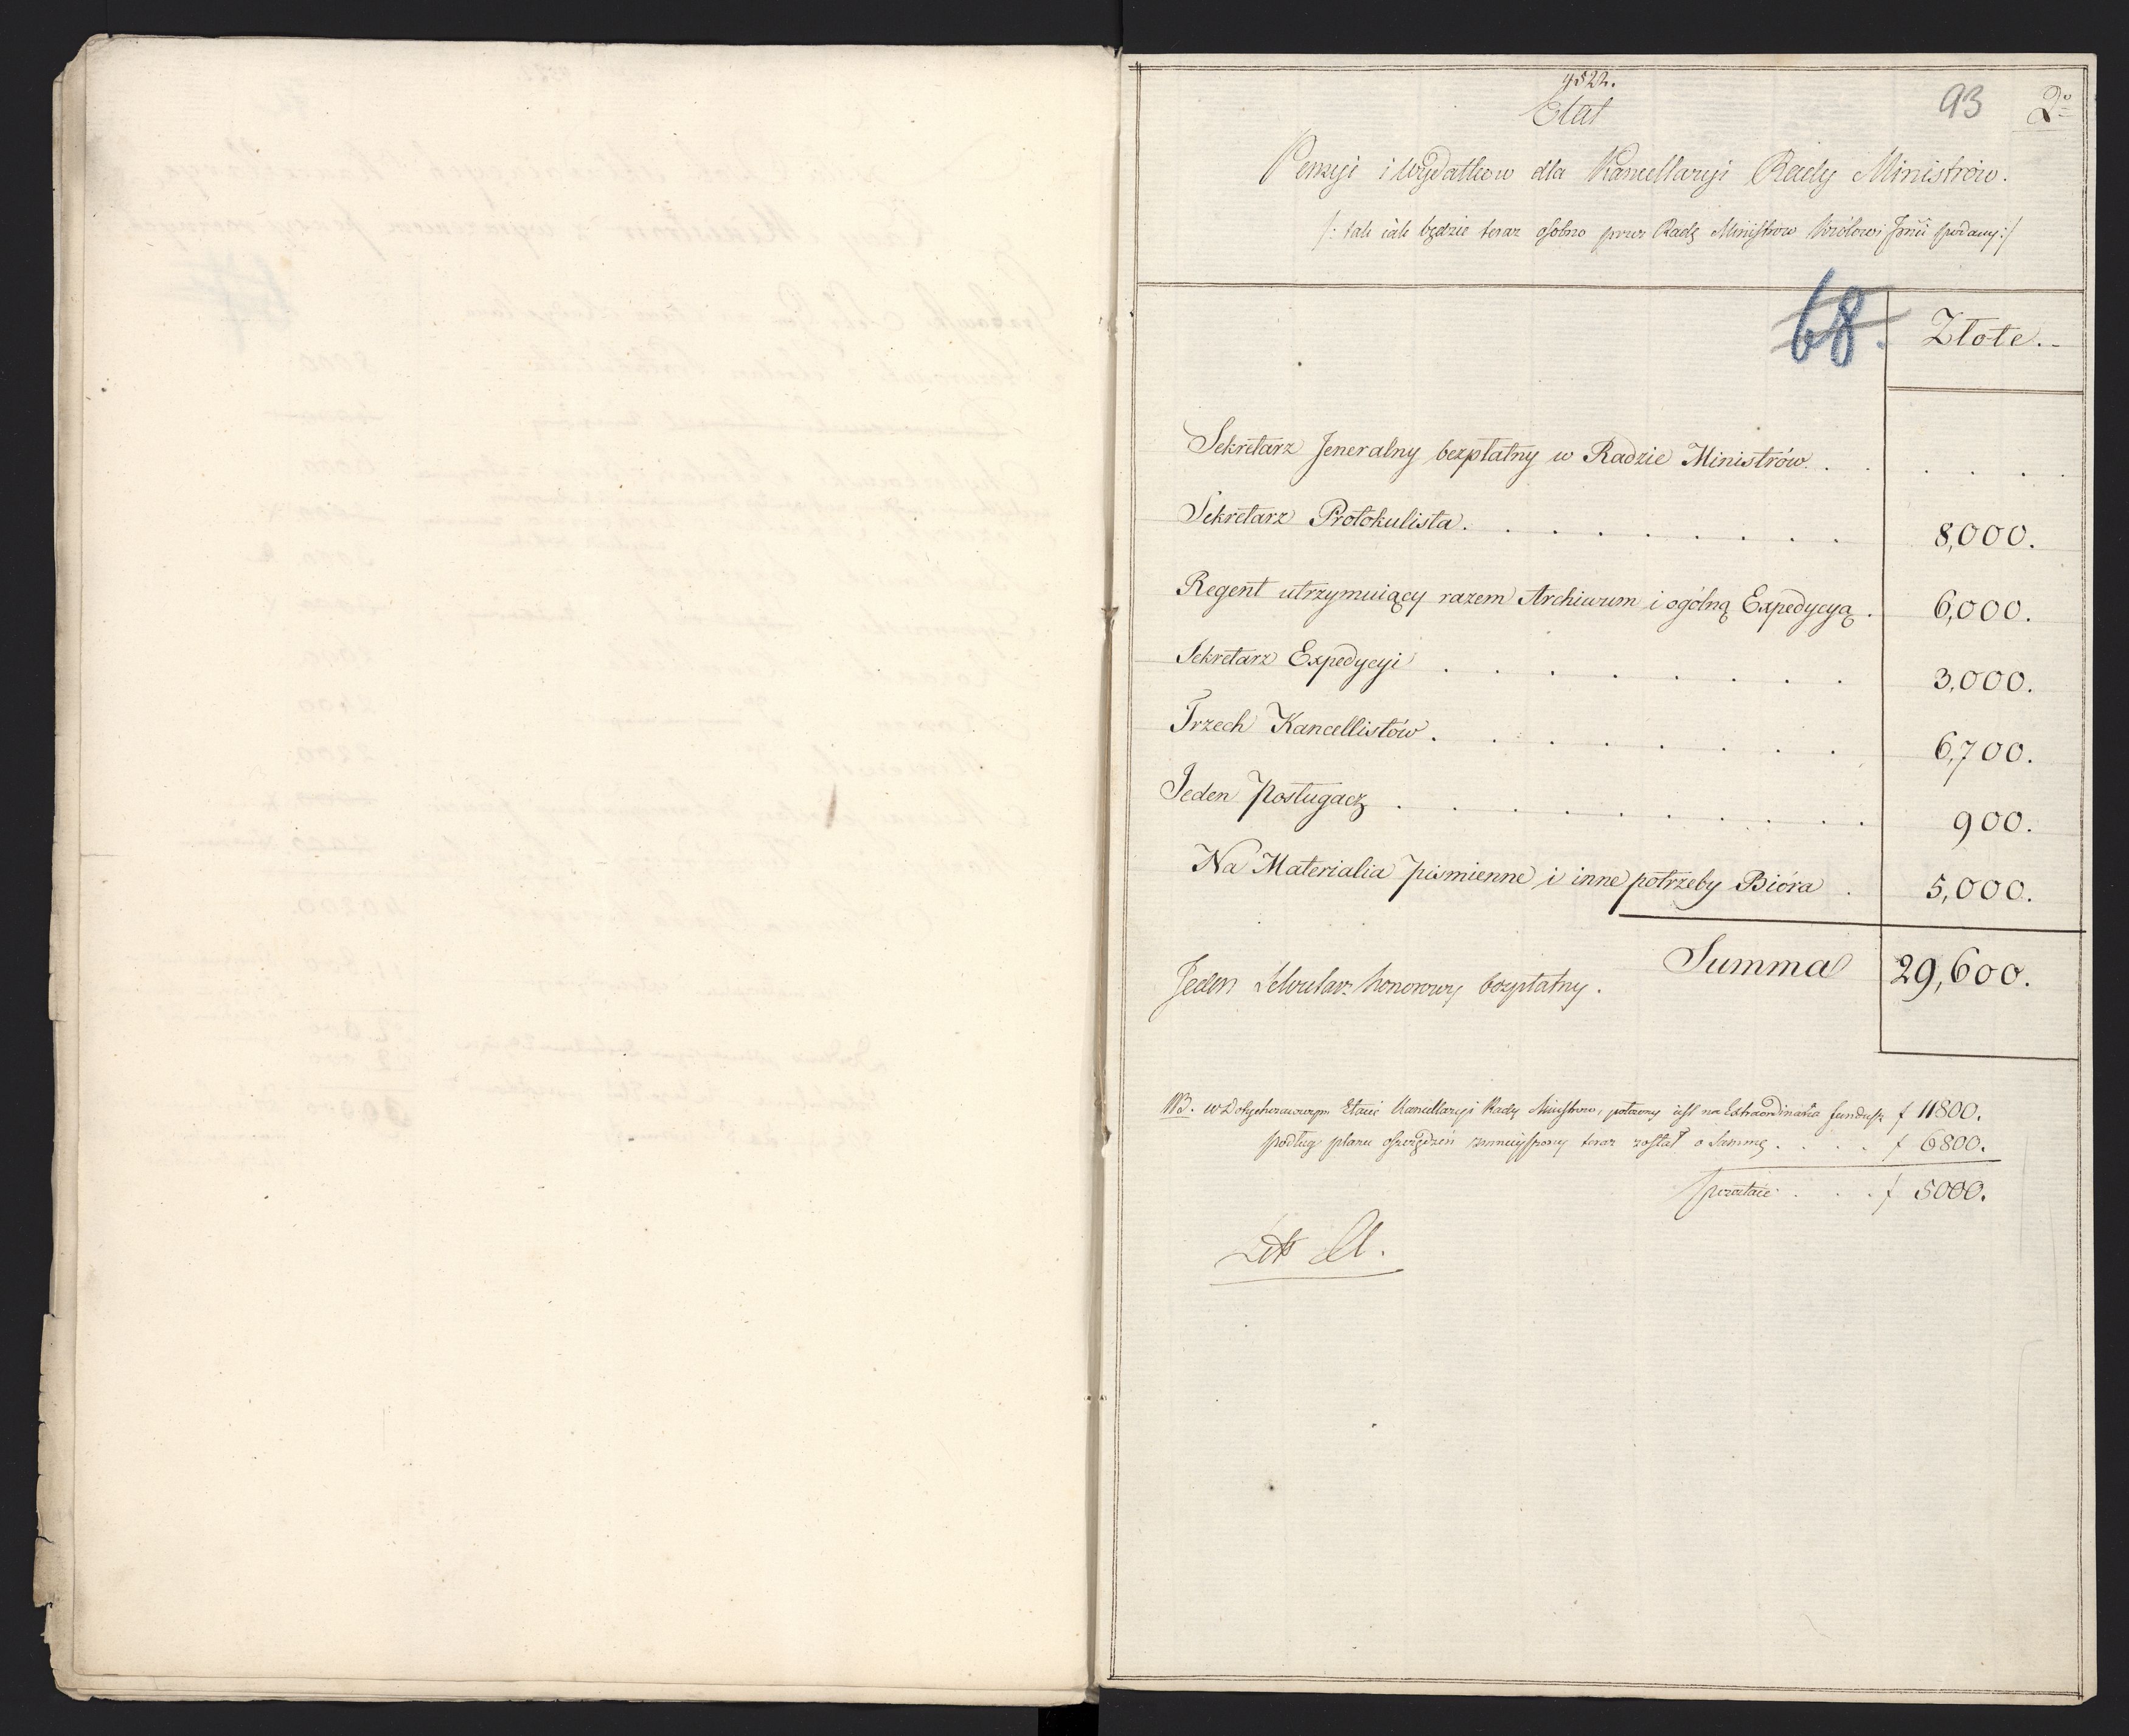 4522.
Etat
93 2º
Pensyi i Wydatkow dla Kancellaryi Rady Ministrów.
/: tak iak będzie teraz osobno przez Radę Ministrow Królowi Jmci podany :/
68.
Złote.
Sekretarz Jeneralny bezpłatny w Radzie Ministrów . . . . . .
Sekretarz Protokulista . . . . . . . . 8,000.
Regent utrzymuiący razem Archiwum i ogólną Expedycyą . 6,000.
Sekretarz Expedycyi . . . . . . . . 3,000.
Trzech Kancellistów . . . . . . . . 6,700.
Jeden Posługacz . . . . . . . . . 900.
Na Materialia pismienne i inne potrzeby Bióra . 5,000.
Summa 29,600.
Jeden Sekretarz honorowy bezpłatny.
NB. w Dotychczasowym Etacie Kancellaryi Rady Ministrow, położony iest na Extraordinaria fundusz f 11800.
podług planu oszczędzeń zmnieyszony teraz został o Summę . . . . f 6800.
pozostaie . . . f 5000.